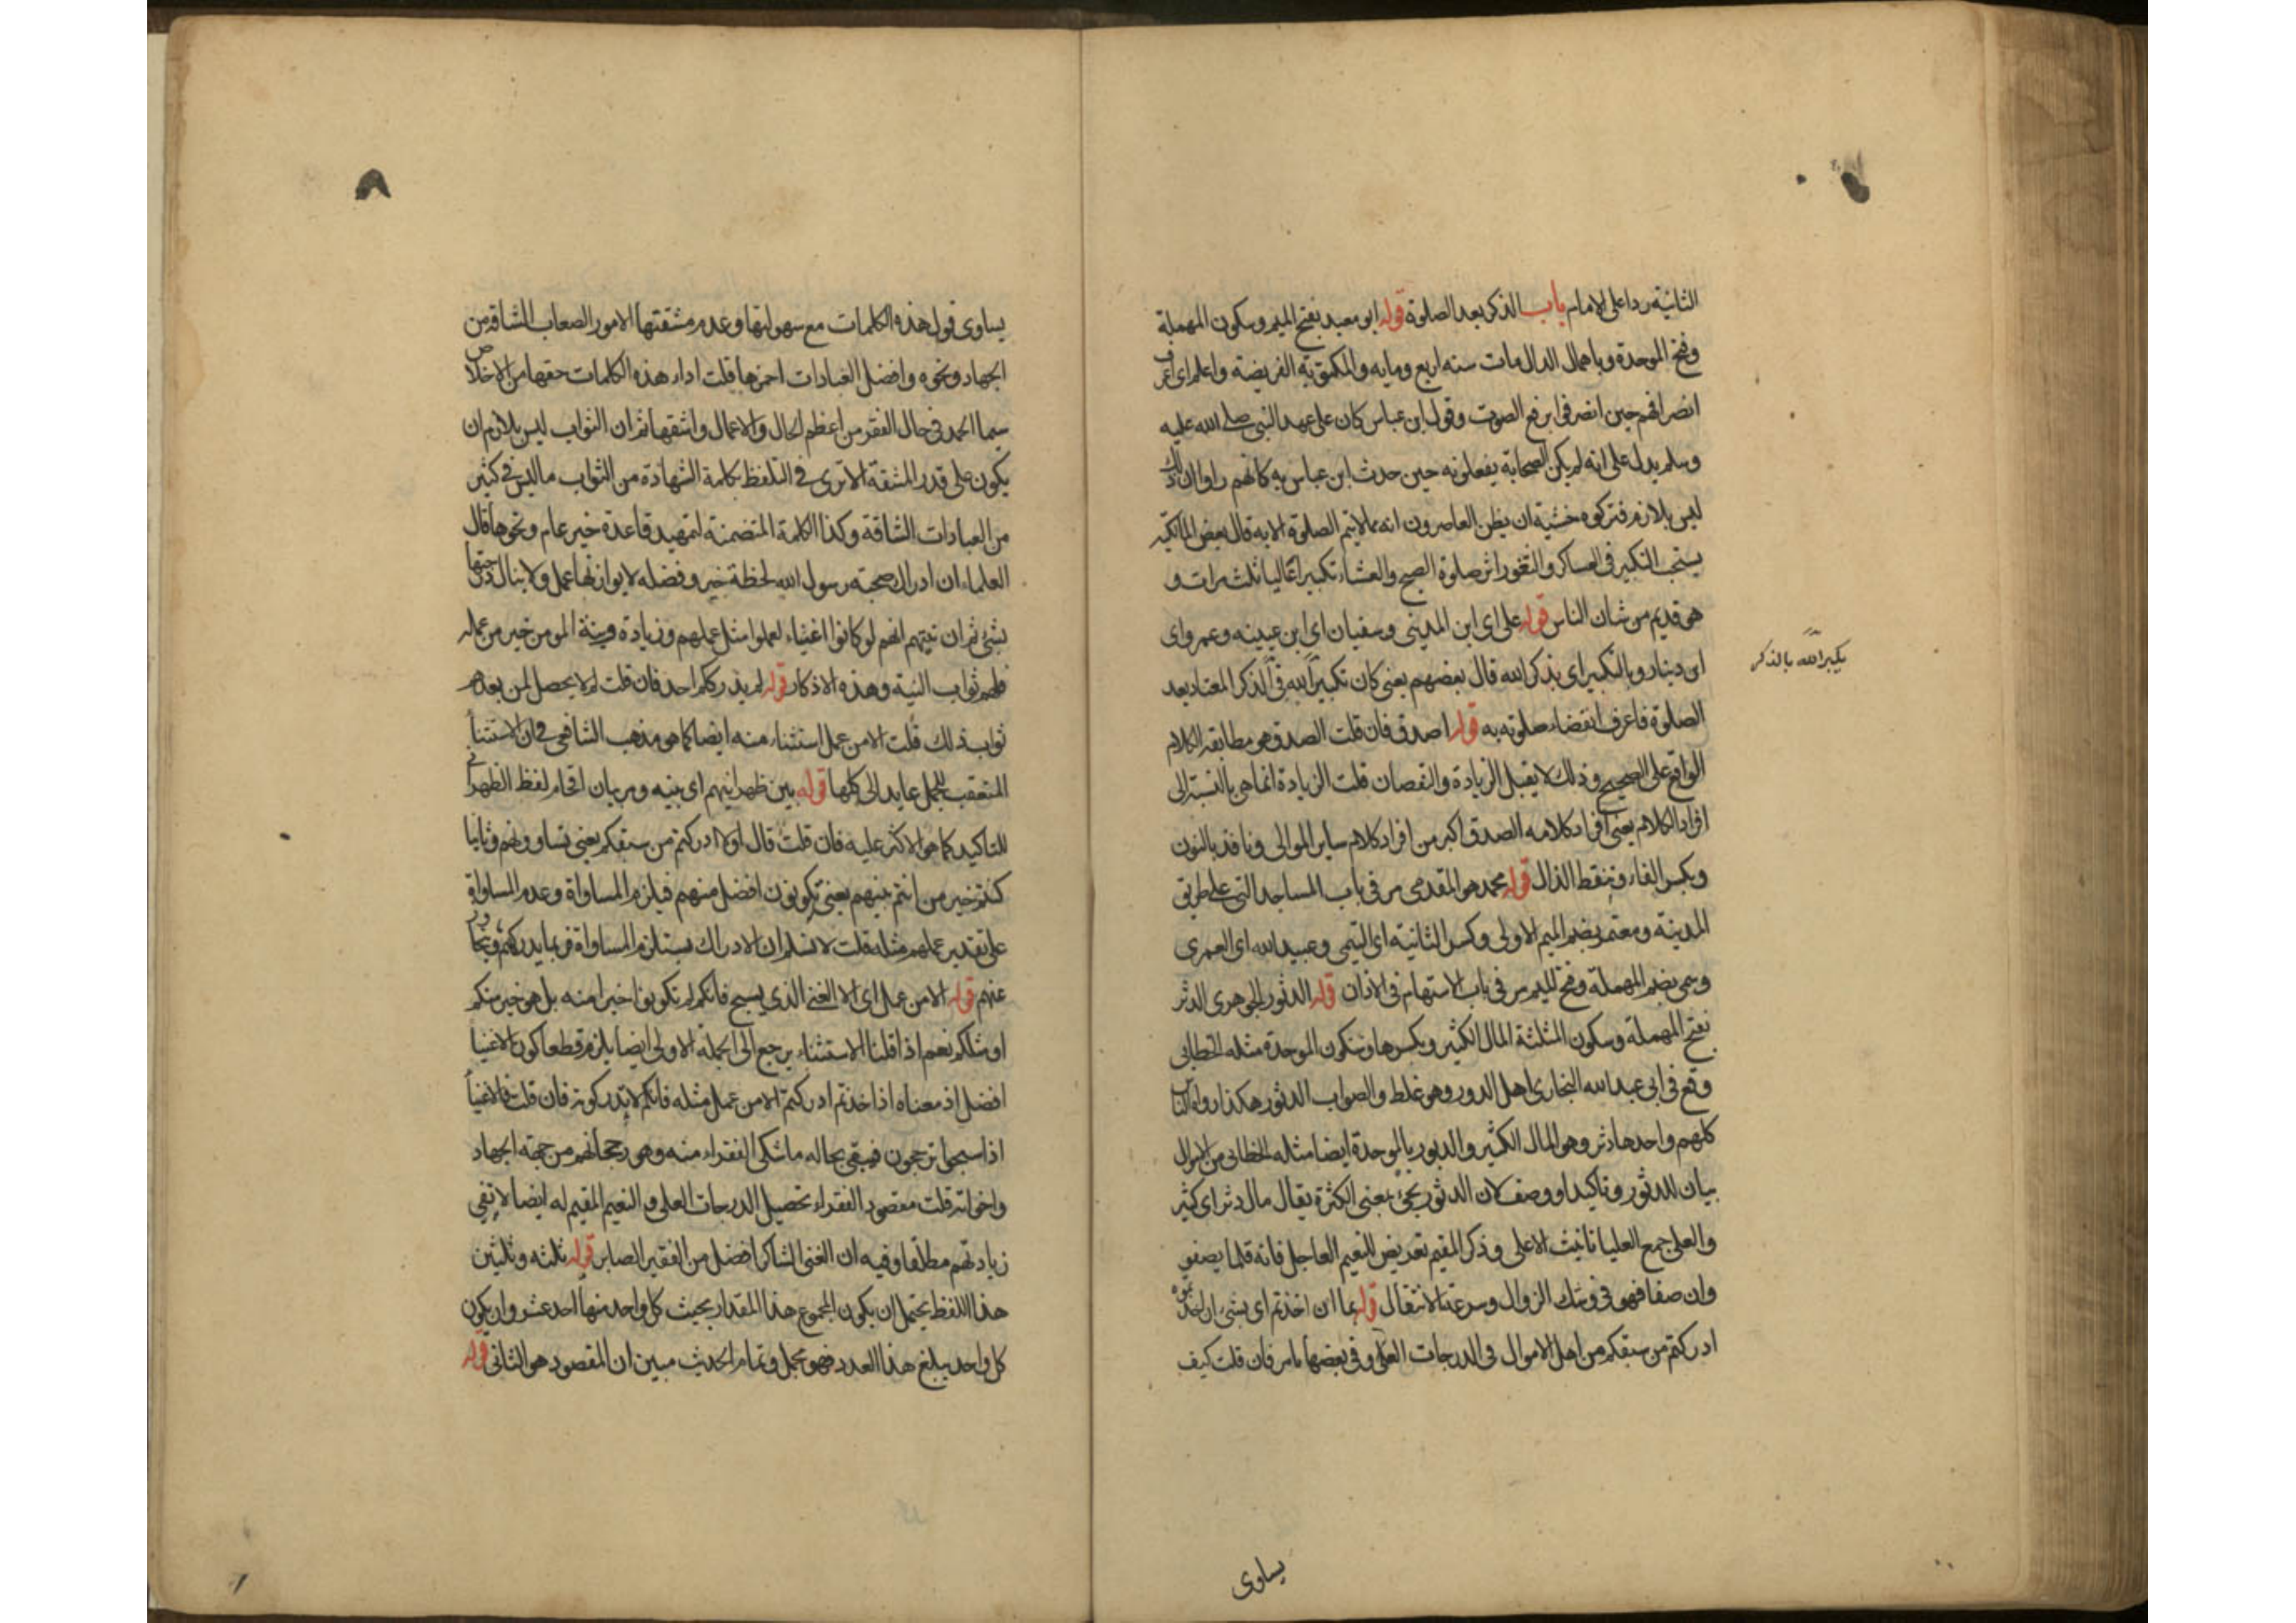 الثانية ردا على الامام باب الذكر بعد الصلوة قوله ابو معبد بفتح الميم وسكون المهملة
وفتح الموحدة وباهمال الدال مات سنه اربع ومايه والمكتوبة الفريضة واعلم اى اعرف
انصرافهم حين انصرفوا برفع الصوت وقول ابن عباس كان على عهد النبى صلى الله عليه
وسلم يدل على انه لم يكن الصحابة يفعلونه حين حدث ابن عباس به كانهم راوا ان ذلك
ليس بلازم فتركوه خشية ان يظن القاصرون انه مما لا يتم الصلوة الا به قال بعض المالكية
يستحب التكبير فى العساكر والثغور اثر صلوة الصبح والعشاء تكبيرا عاليا ثلث مرات و
هو قديم من شان الناس قوله على اى ابن المدينى وسفيان اى ابن عيينه وعمرو اى
ابن دينار وبالتكبير اى بذكر الله قال بعضهم يعنى كان تكبير الله فى الذكر المعتاد بعد
يكبر الله بالذكر
الصلوة فاعرف انقضاء صلوته به قوله اصدق فان قلت الصدق هو مطابقه الكلام
الواقع على الصحيح وذلك لا يقبل الزيادة والنقصان قلت الزيادة انما هى بالنسبة الى
افراد الكلام يعنى افراد كلامه الصدق اكبر من افراد كلام ساير الموالى ونافذ بالنون
وبكسر الفاء وبنقط الذال قوله محمد هو المقدمى مر فى باب المساجد التى على طريق
المدينة ومعتمر بضم الميم الاولى وكسر الثانية اى التيمى وعبيد الله اى العمرى
وسمى بضم المهملة وفتح الميم مر فى باب الاستهام فى الاذان قوله الدثور الجوهرى الدثر
بفتح المهملة وسكون المثلثة المال الكثير وبكسرها وسكون الموحدة مثله الخطابى
وقع فى ابى عبد الله البخارى اهل الدور وهو غلط والصواب الدثور هكذا رواه الناس
كلهم واحدها دثر وهو المال الكثير والدبور بالموحدة ايضا مثله الخطابى من الاموال
بيان للدثور وتاكيد او وصف لان الدثور يجئ بمعنى الكثرة يقال مال دثر اى كثير
والعلى جمع العليا تانيث الاعلى وذكر المقيم تعريض للنعيم العاجل فانه قلما يصفو
وان صفا فهو فى وشك الزوال وسرعة الانتقال قوله بما ان اخذتم اى بشئ ان اخذتموه
ادركتم من سبقكم من اهل الاموال فى الدرجات العلى وفى بعضها مامر فان قلت كيف
يساوى
يساوى قول هذه الكلمات مع سهولتها وعدم مشقتها الامور الصعاب الشاقة من
الجهاد ونحوه وافضل العبادات احمزها قلت اداء هذه الكلمات حقها من الاخلاص
سيما الحمد فى حال الفقر من اعظم الحال والاعمال واشقها ثم ان الثواب ليس بلازم ان
يكون على قدر المشقة الا ترى فى التلفظ بكلمة الشهادة من الثواب ما ليس فى كثير
من العبادات الشاقة وكذا الكلمة المتضمنة لتمهيد قاعدة خير عام ونحوها قال
العلماء ان ادراك صحبة رسول الله لحظة خير وفضله لا يوازنها عمل ولا ينال درجتها
بشئ ثم ان نيتهم انهم لو كانوا اغنياء لعملوا مثل عملهم وزيادة ونية المومن خير من عمله
فلهم ثواب النية وهذه الاذكار قوله لم يدرككم احد فان قلت لم لا يحصل لمن بعدهم
ثواب ذلك قلت الا من عمل استثناء منه ايضا كما هو مذهب الشافعى فى ان الاستثناء
المتعقب للجمل عايد الى كلها قوله بين ظهرانيهم اى بينهم ومر بان اقحام لفظ الظهرانى
للتاكيد كما هو الاكثر عليه فان قلت قال اولا ادركتم من سبقكم يعنى تساوونهم وثانيا
كنتم خير من انتم بينهم يعنى تكونون افضل منهم فيلزم المساواة وعدم المساواة
على تقدير عملهم مثله قلت لا نسلم ان الادراك يستلزم المساواة فربما يدركهم ويتجاوز
عنهم قوله الا من عمل اى الا الغنى الذى يسبح فانكم لم تكونوا خيرا منه بل هو خير منكم
او مثلكم نعم اذا قلنا الاستثناء يرجع الى الجملة الاولى ايضا يلزم قطعا كون الاغنيا
افضل اذ معناه اذا اخذتم ادركتم الا من عمل مثله فانكم لا تدركونه فان قلت فالاغنيا
اذا سبحوا يترجحون فيبقى بحاله ما شكى الفقراء منه وهو رجحانهم من جهة الجهاد
واخواته قلت مقصود الفقراء تحصيل الدرجات العلى والنعيم المقيم له ايضا لا نفى
زيادتهم مطلقا وفيه ان الغنى الشاكر افضل من الفقير الصابر قوله ثلثه وثلثين
هذا اللفظ يحتمل ان يكون المجموع هذا المقدار بحيث كل واحد منها احد عشر وان يكون
كل واحد يبلغ هذا العدد فهو مجمل وتمام الحديث مبين ان المقصود هو الثانى قوله